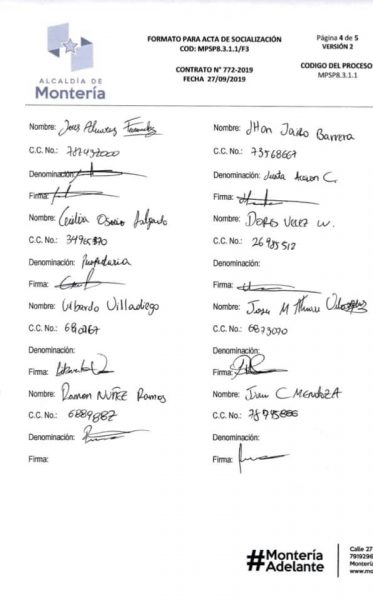 ALCALDÍA DE
Montería
FORMATO PARA ACTA DE SOCIALIZACIÓN
COD: MPSP8.3.1.1/F3
CONTRATO N° 772-2019
FECHA 27/09/2019
Página 4 de 5
VERSIÓN 2
CODIGO DEL PROCESO
MPSP8.3.1.1
Nombre: Jesus Alvarez
C.C. No.: 78743000
Denominación:
Firma:
Nombre: Cecilia Osorio Salgado
C.C. No.: 34965370
Denominación: Propietaria
Firma:
Nombre: Ubardo Villadiego
C.C. No.: 680767
Denominación:
Firma:
Nombre: Ramon NUÑEZ Ramos
C.C. No.: 6889882
Denominación:
Firma:
Nombre: JHon Jairo Barrera
C.C. No.: 73568667
Denominación: Junta Accion C.
Firma:
Nombre: DORIS VELEZ W.
C.C. No.: 26955512
Denominación:
Firma:
Nombre: Jose M
C.C. No.: 6873070
Denominación:
Firma:
Nombre: Juan C MENDOZA
C.C. No.: 78745886
Denominación:
Firma:
#Montería
Adelante
Calle 27
7919296
Montería